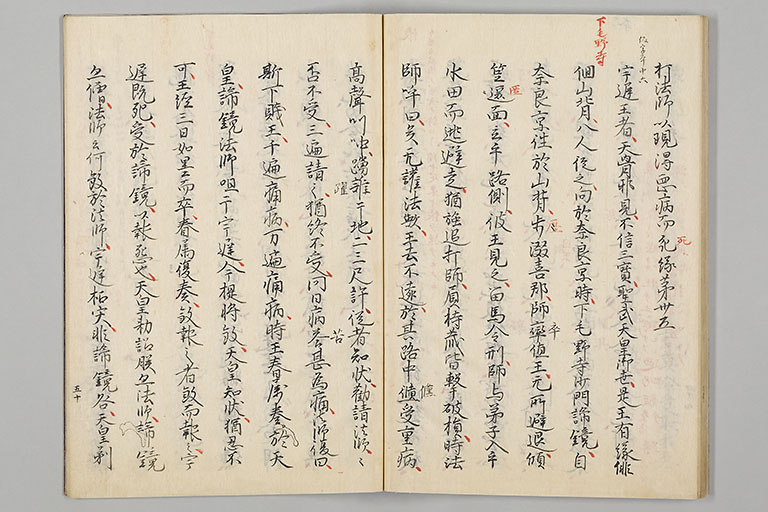 打法師以現得惡病而死縁第卅五
宇遲王者、天骨邪見、不信三寶、聖武天皇御世、是王有縁徘
徊山背、八人從之、向於奈良京、時下毛野寺沙門諦鏡、自
奈良京往於山背、步綴喜郡、師率値王、无所避退、傾
笠還面、立乎路側、彼王見之、留馬令刑、師与弟子、入乎
水田而逃避走、猶強追打、師負持藏皆擊破損、時法
師呼曰、奚无護法歟、王去不遠、於其路中、儵受重病
高聲叫呻、踴離于地、二三尺許、從者知狀、勸請法師、々
否不受、三遍請之、猶終不受、問曰病、答甚為痛、師復曰
斯下賤王、千遍痛病、万遍痛病、時王眷屬、奏於天
皇、諦鏡法師、咀于宇遲、今捉將敛、天皇知狀、猶忍不
可、王經三日、如墨而卒、眷屬復奏、敛報之者、敛而報之、宇
遲既死、受於諦鏡、以報怨也、天皇勅詔、朕亦法師、諦鏡
亦僧、法師云何敛於法師、宇遲招灾、非諦鏡咎、天皇剃
下毛野寺
死
匿
乎
儵
躍
苦
五十